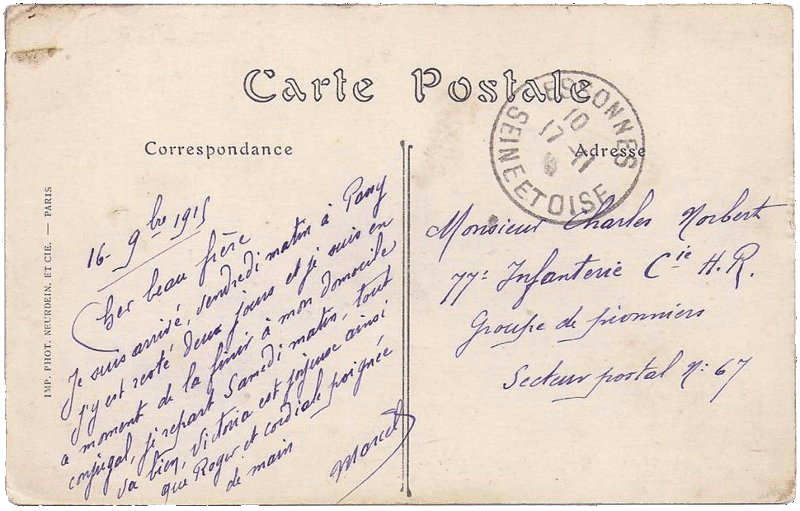 Carte Postale
Correspondance
Adresse
ESSONNES
10
17 - 11
SEINE ET OISE
IMP. PHOT. NEURDEIN, ET CIE. — PARIS
16 - 9bre 1915
Cher beau frère
Je suis arrivé, vendredi matin à
j'y est resté deux jours et je suis en
a moment de la finir à mon domicile
conjugal, je repart Samedi matin, tout
va bien, Victoria est joyeuse ainsi
que Roger et cordiale poignée
de main
Marcel
Monsieur Charles Norbert
77e Infanterie Cie H.R.
Groupe de pionniers
Secteur postal No 67